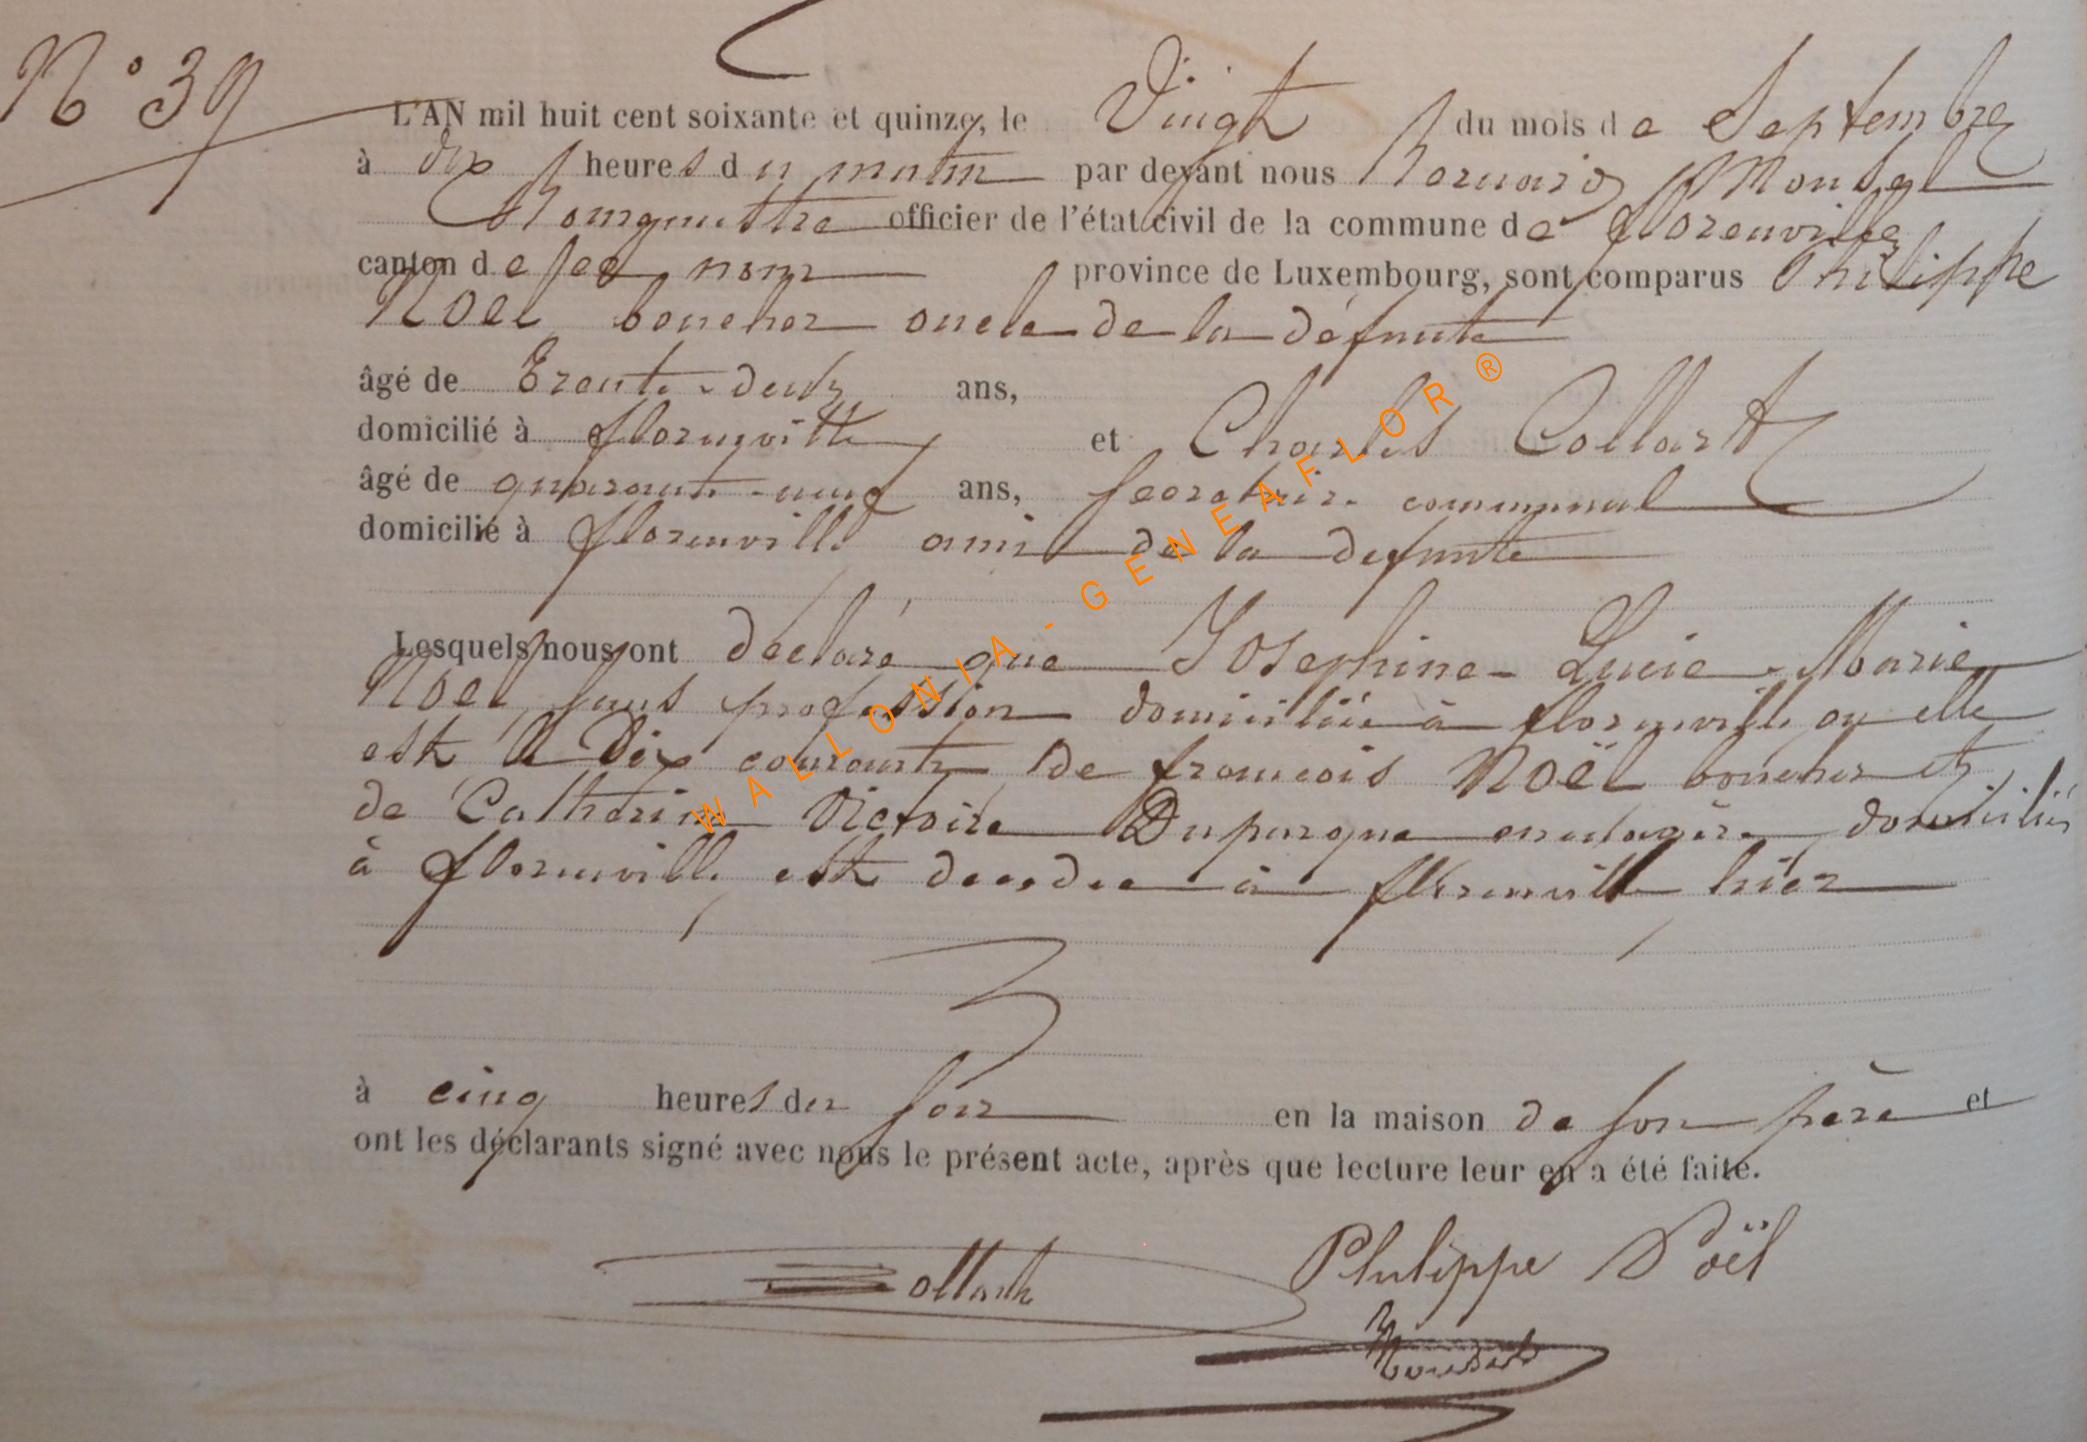 N° 39
L'AN mil huit cent soixante et quinze, le Vingt du mois de Septembre
à dix heures du matin par devant nous Bernard Monsel
Bourgmestre officier de l'état civil de la commune de florenville
canton de ce nom province de Luxembourg, sont comparus Philippe
Noel boucher oncle de la défunte
âgé de Trente-deux ans,
domicilié à florenville et Charles Collart
âgé de quarante-neuf ans, secretaire communal
domicilié à florenville ami de la defunte
Lesquels nous ont déclaré que Josephine-Lucie-Marie
Noel sans profession domiciliée à florenville ou elle
est le Dix courant de francois Noël boucher et
de Catherine Victoire Duparque menagère domiciliés
à florenville est decedee à florenville hier
à cinq heures du soir en la maison de son père et
ont les déclarants signé avec nous le présent acte, après que lecture leur en a été faite.
Collart Philippe Noël
WALLONIA-GENEAFLOR®